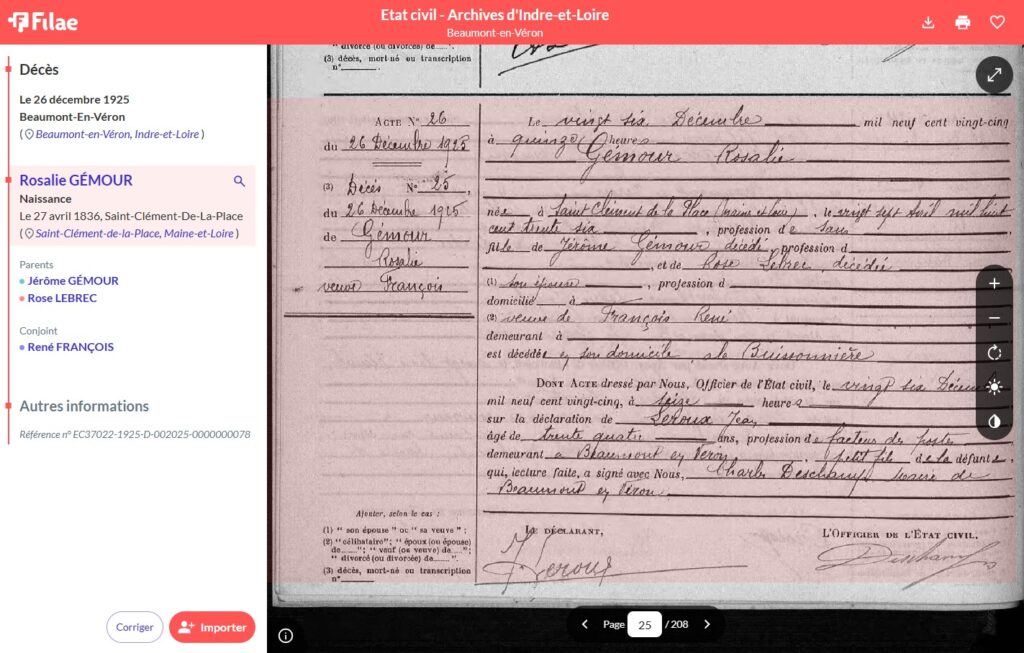 Filae
Etat civil - Archives d'Indre-et-Loire
Beaumont-en-Véron
Décès
Le 26 décembre 1925
Beaumont-En-Véron
( Beaumont-en-Véron, Indre-et-Loire )
Rosalie GÉMOUR
Naissance
Le 27 avril 1836, Saint-Clément-De-La-Place
( Saint-Clément-de-la-Place, Maine-et-Loire )
Parents
Jérôme GÉMOUR
Rose LEBREC
Conjoint
René FRANÇOIS
Autres informations
Référence n° EC37022-1925-D-002025-0000000078
Corriger
Importer
" divorcé (ou divorcée) de......".
(3) décès, mort-né ou transcription
n°
Acte N° 26
du 26 Décembre 1925
(3) Décès N° 25,
du 26 Décembre 1925
de Gémour
Rosalie
veuve François
Ajouter, selon le cas :
(1) " son épouse " ou " sa veuve " ;
(2) " célibataire "; " époux (ou épouse)
de......"; " veuf (ou veuve) de......";
" divorcé (ou divorcée) de......".
(3) décès, mort-né ou transcription
n°
Le vingt six Décembre mil neuf cent vingt-cinq
à quinze heures
Gémour Rosalie
née à Saint Clément de la Place (Maine et Loire), le vingt sept Avril mil huit
cent trente six, profession de sans
fille de Jérôme Gémour décédé, profession d
, et de Rose Lebrec, décédée
(1) son épouse, profession d
domicilié à
(2) veuve de François René
demeurant à
est décédée en son domicile, à la Buissonnière
Dont Acte dressé par Nous, Officier de l'État civil, le vingt six Décembre
mil neuf cent vingt-cinq, à seize heures
sur la déclaration de Leroux Jean
âgé de trente quatre ans, profession de facteur des postes
demeurant à Beaumont en Véron, petit fils de la défunte,
qui, lecture faite, a signé avec Nous, Charles Deschamps, maire de
Beaumont en Véron.
Le déclarant,
L'Officier de l'État civil,
J Leroux
Deschamps
Page 25 / 208